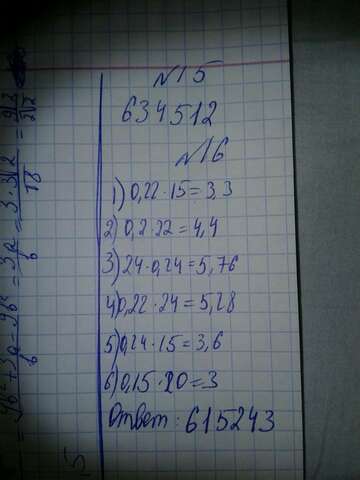 N15
634512
N16
1) 0,22 · 15 = 3,3
2) 0,2 · 22 = 4,4
3) 24 · 0,24 = 5,76
4) 0,22 · 24 = 5,28
5) 0,24 · 15 = 3,6
6) 0,15 · 20 = 3
Ответ: 615243